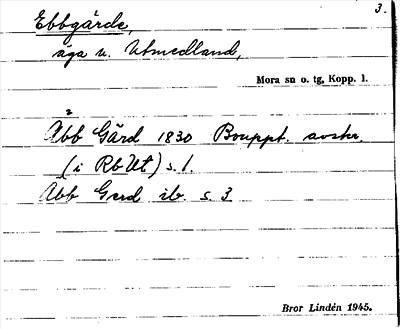 3.
Ebbgärde,
äga u. Utmedland,
Mora sn o. tg, Kopp. l.
Åbb Gärd 1830 Bouppt. avskr.
(i Rb Ut) s. 1.
Abb Gerd ib. s. 3
Bror Lindén 1945.